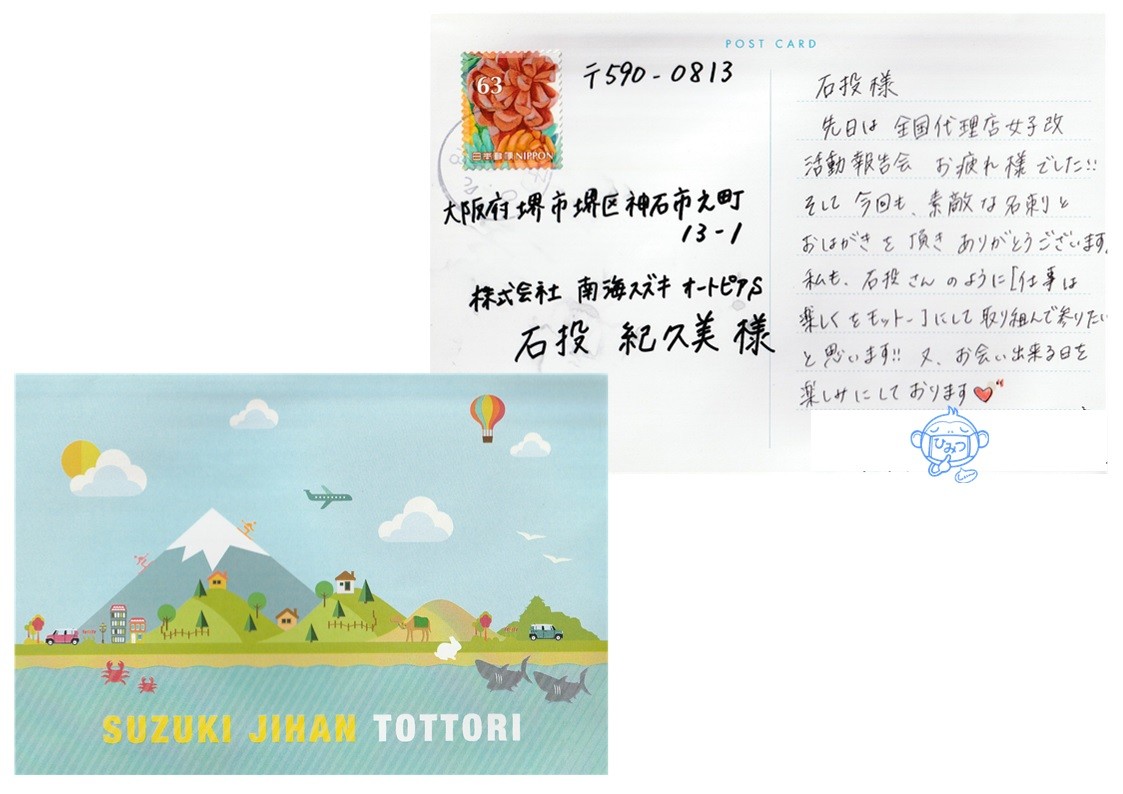 POST CARD
63
日本郵便 NIPPON
〒590-0813
大阪府堺市堺区神石市之町
13-1
株式会社 南海スズキ オートピアS
石投 紀久美 様
石投様
先日は 全国代理店女子改
活動報告会 お疲れ様でした!!
そして 今回も、素敵な名刺と
おはがきを 頂き ありがとうございます。
私も、石投さんのように[仕事は
楽しくをモットー]にして取り組んで参りたい
と思います!! 又、お会い出来る日を
楽しみにしております
ひみつ
SUZUKI JIHAN TOTTORI